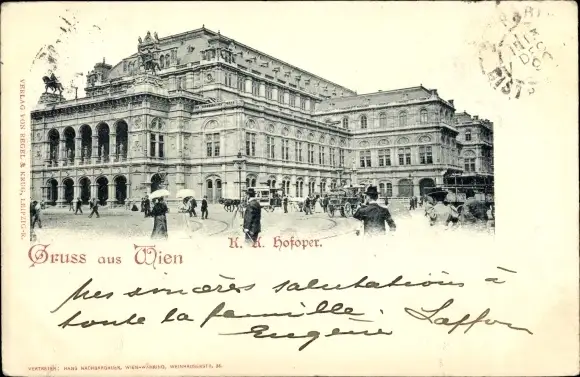 VERLAG VON REGEL & KRUG, LEIPZIG-R.
K. K. Hofoper.
Gruss aus Wien
Mes sincères salutations à
toute la famille. Laffon
Eugène
VERTRETER: HANS NACHBARGAUER, WIEN-WÄHRING,